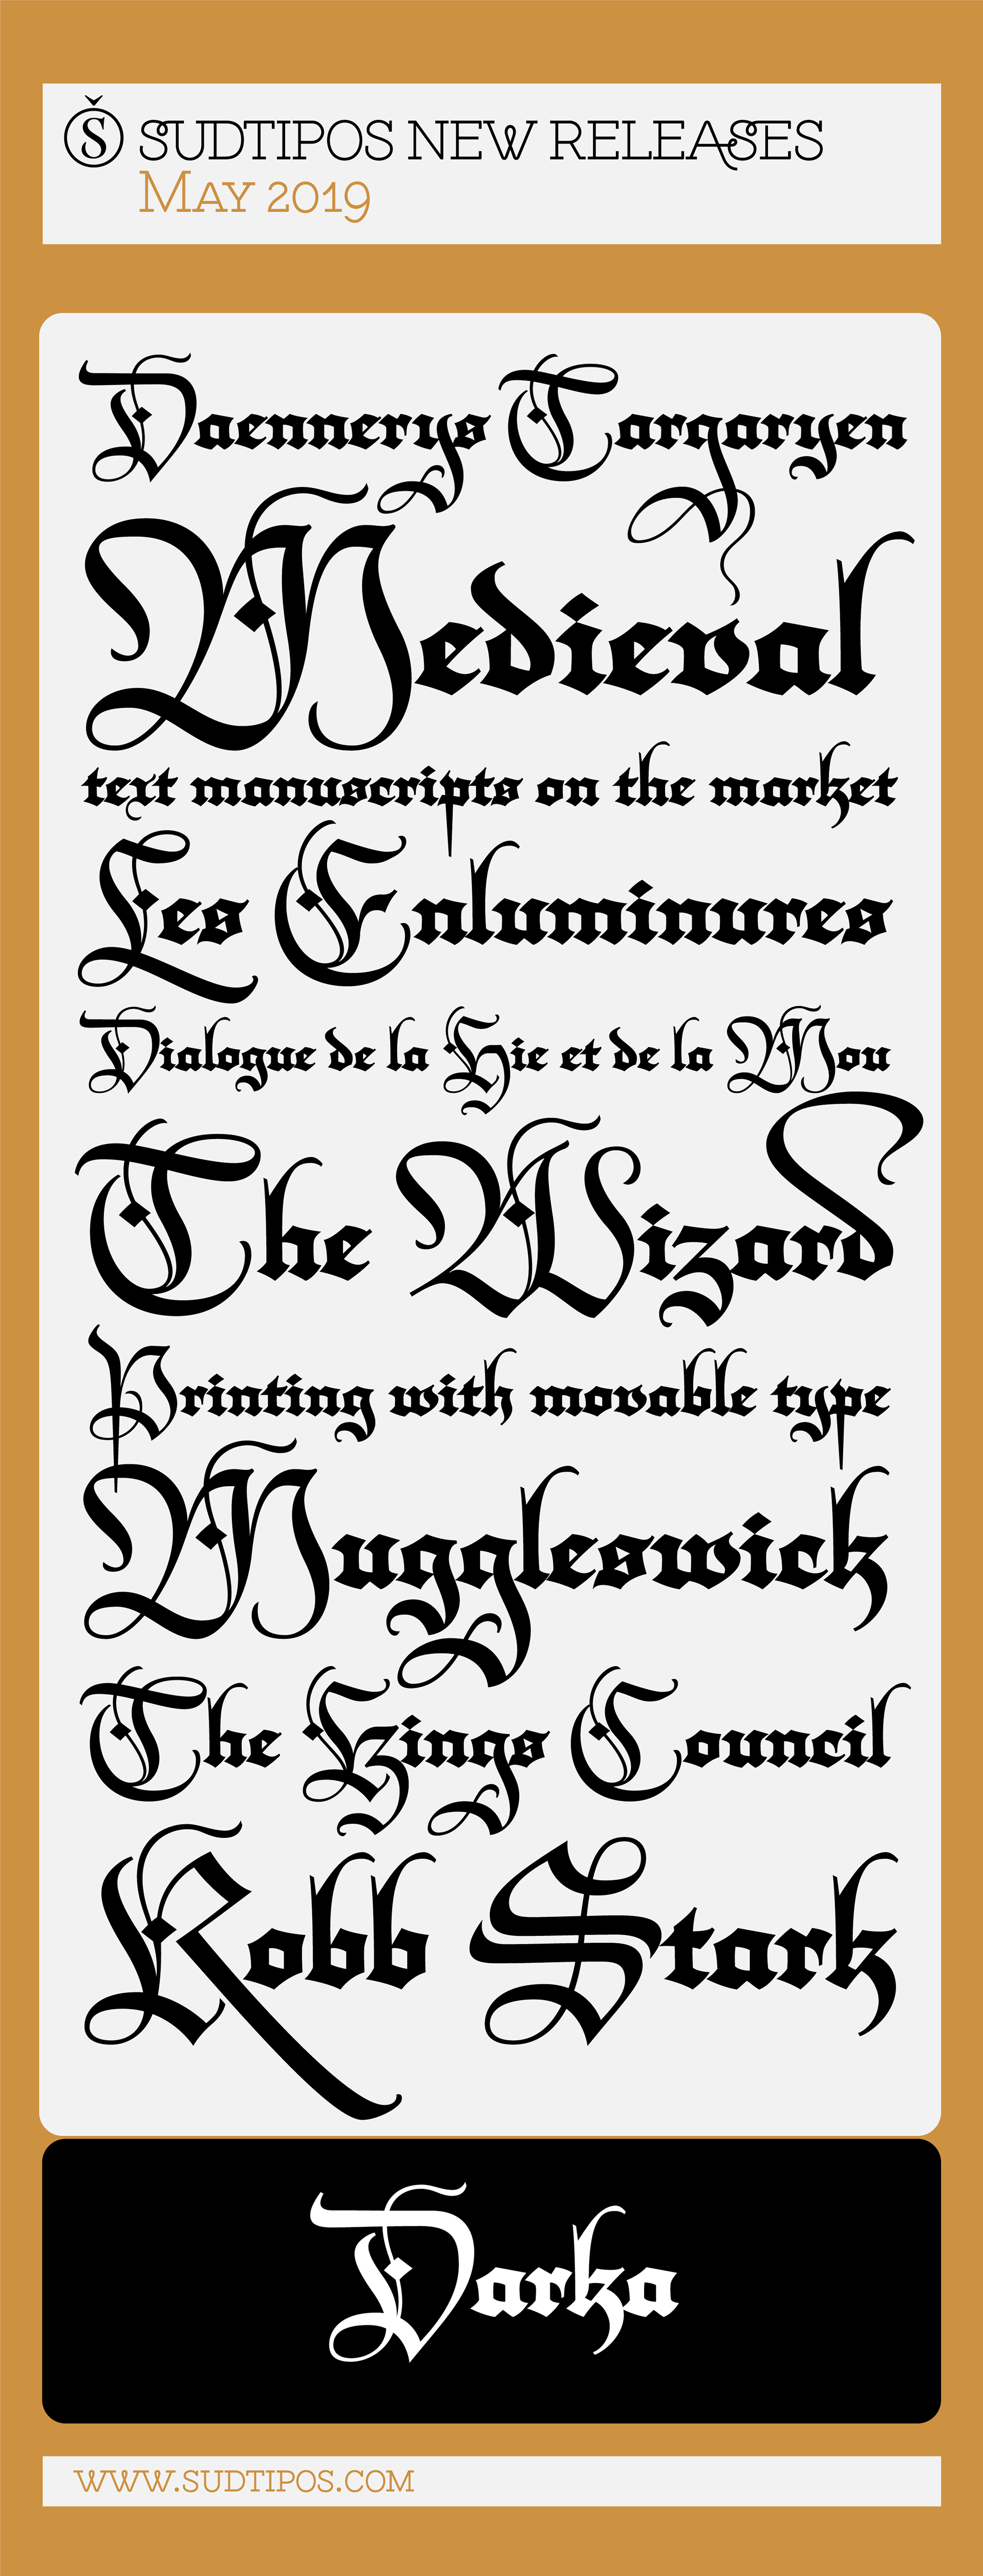 Š SUDTIPOS NEW RELEASES
MAY 2019
Daennerys Targaryen
Medieval
text manuscripts on the market
Les Enluminures
Dialogue de la Hie et de la Mou
The Wizard
Printing with movable type
Muggleswick
The Kings Council
Robb Stark
Darka
WWW.SUDTIPOS.COM